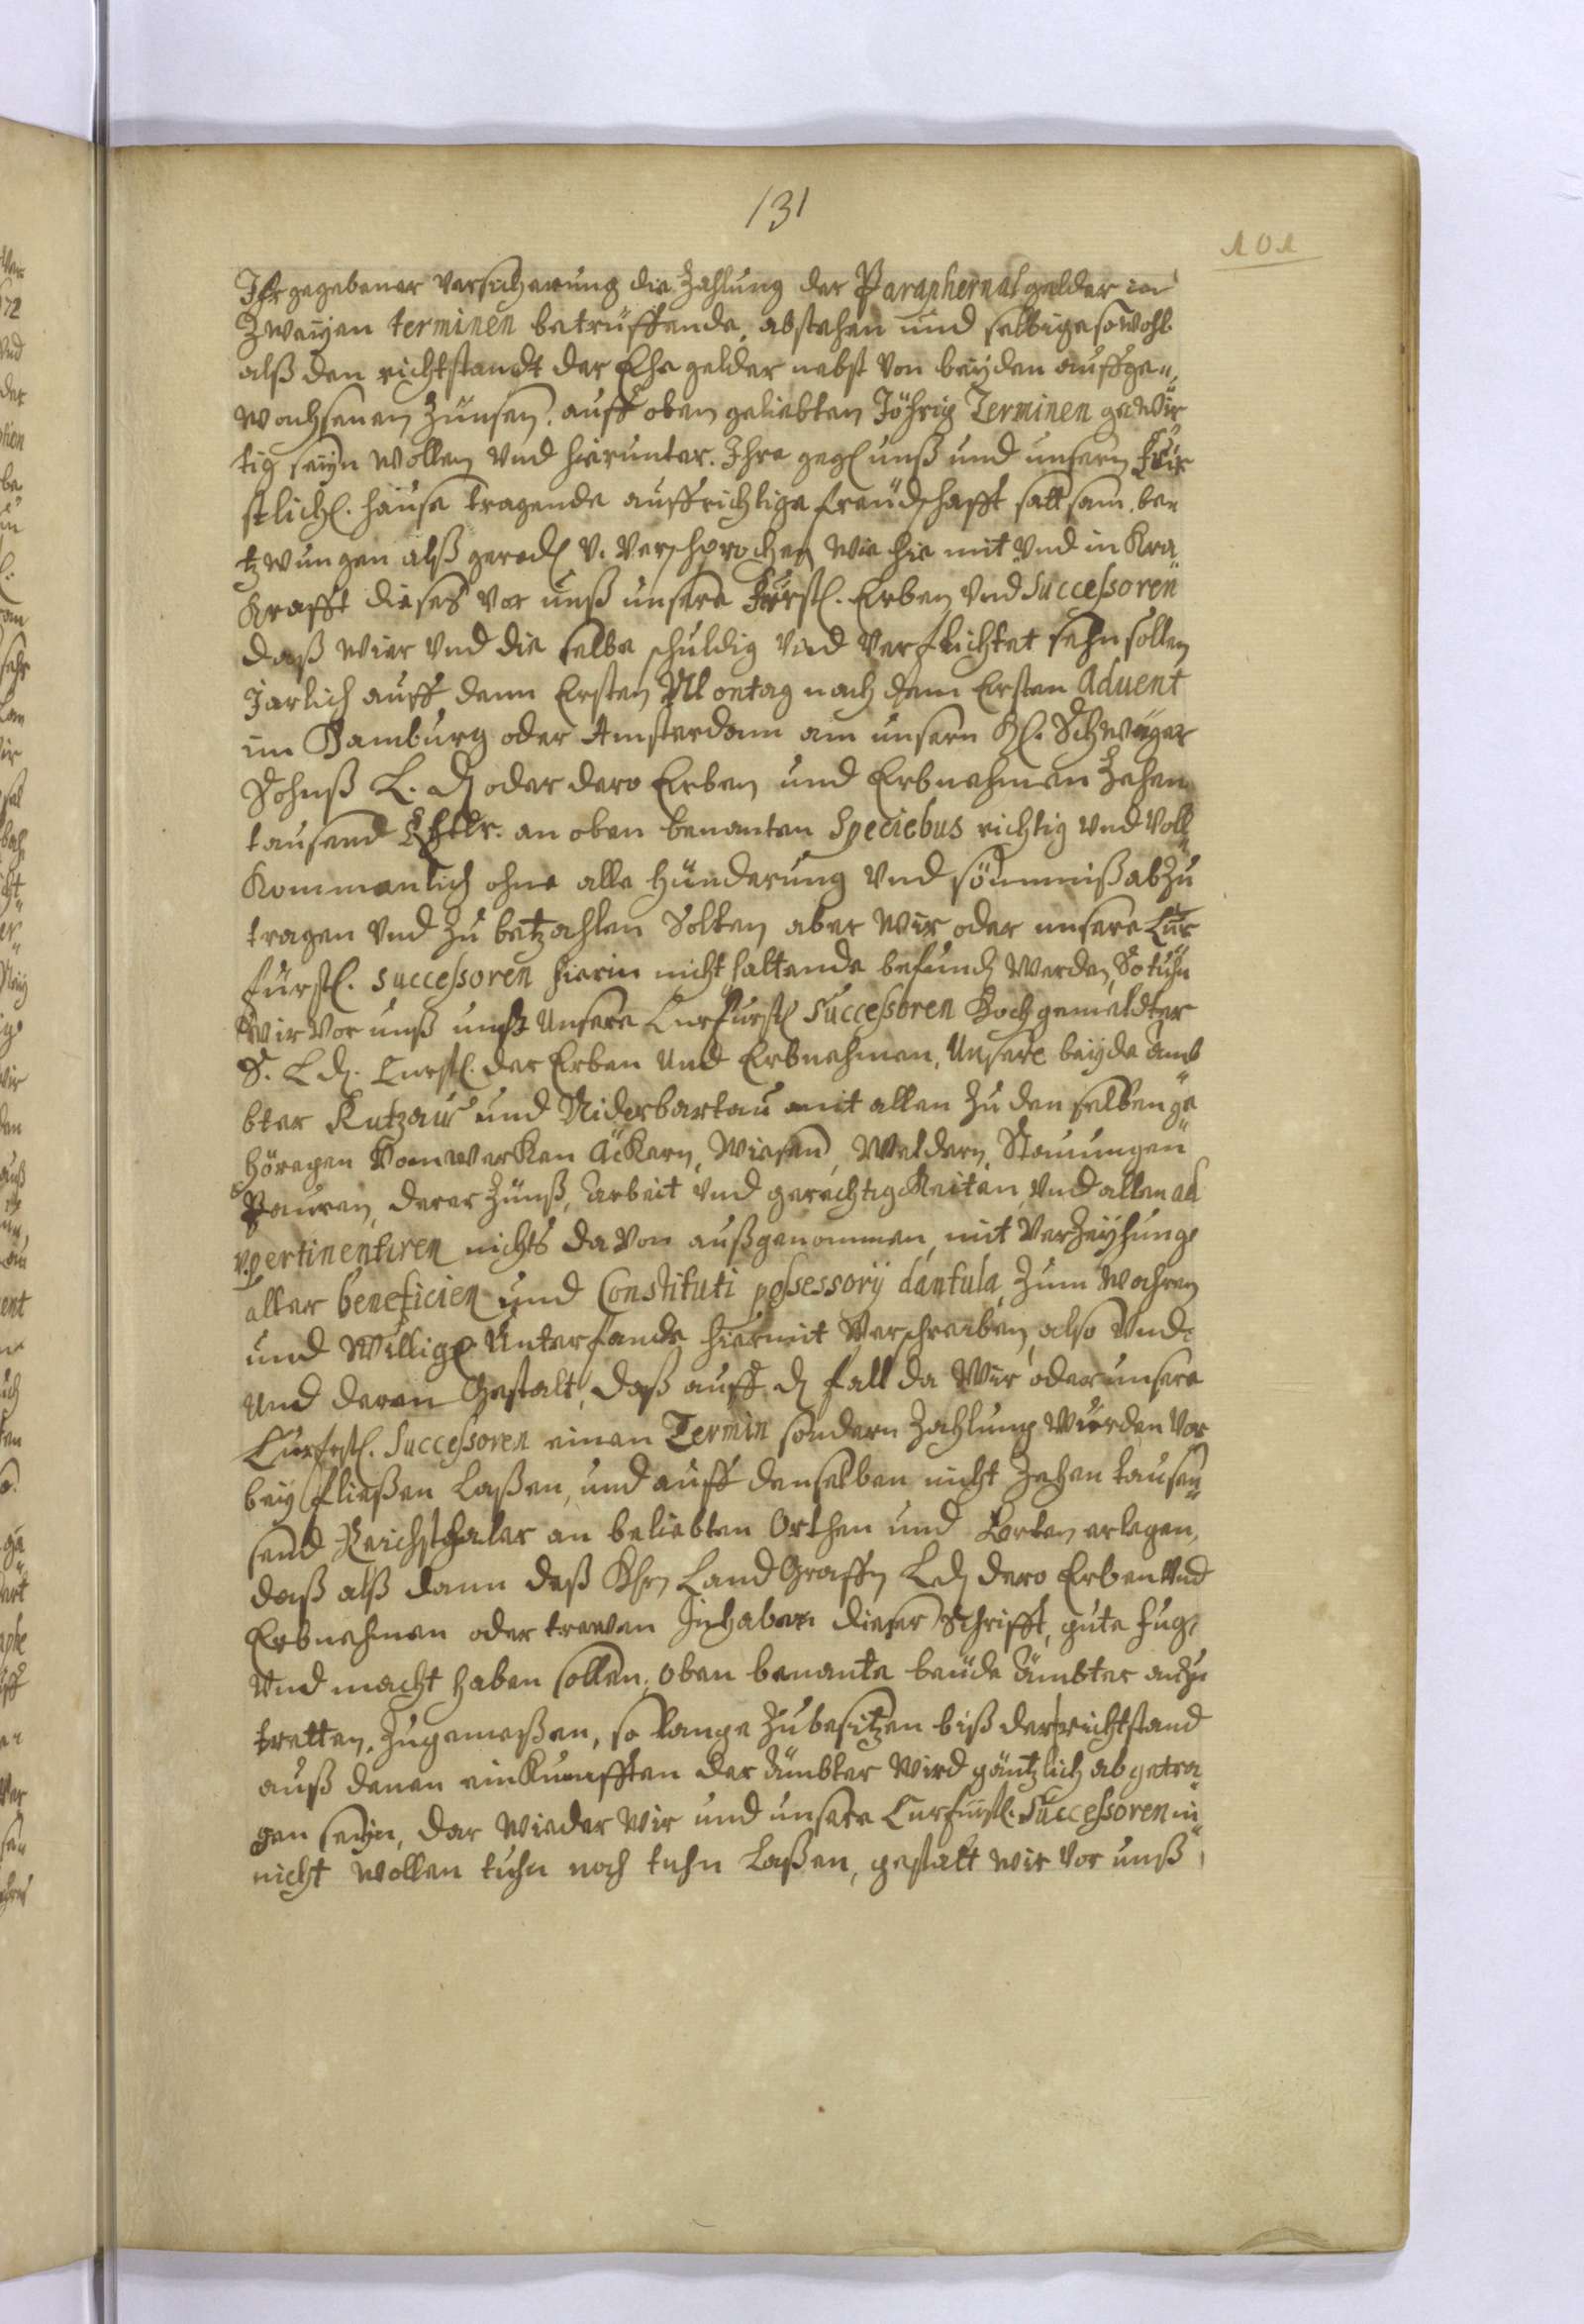 131
101
Ihr gegebener versicherung die Zahlung der Paraphernal gelder in
Zweyen terminen betrüffende, abstehen und selbige sowohl
alß den richtstandt der Ehe gelder nebst von beyden auffge„
wachsenen Zünsen, auff oben geliebten Jährig Terminen gewür
tig seyn wollen vnd hierunter Ihre geg. unß und unsern Für
stlich. hause tragende auffrichtige freudschafft satt sam be„
tzwungen alß gered. v. verschprochen wie hie mit vnd in Kra
Krafft dieses vor unß unsere Fürstl. Erben vnd Successoren
daß wier vnd die selbe schuldig vnd verflichtet sehn sollen
Jarlich auff denn Ersten Montag nach dem Ersten Aduent
im Hamburg oder Amsterdam an unsern H. Schwiger
Sohnß L. d. oder dero Erben und Erbnehmen Zehen
tausend Rthlr. an oben benanten Speciebus richtig vnd voll
Kommentlich ohne alle hünderung vnd sömmniß abzu
tragen vnd zu betzahlen Solten aber wir oder unsere Cur
fürstl. successoren hierin nicht haltende befund. werden, So tuhn
wir vor unß unß unsere Curfürstl. Successoren Hochgemeldter
S. Ld. Curstl. der Erben und Erbnehmen, Unsere beyde Ämb
bter Rutzau und Niderbartau mit allen zu den selben ge
höregen Vornwerken Äckern, Wiesen, Weldern, Stauungen
Pauren, derer Zünß, Arbeit vnd gerechtigkeiten, vnd allen ad
pertinentiren nichts da von außgenommen, mit Verzeyhung
aller beneficien und Constituti possessorÿ dantula, zum wahren
und Willig. Unterfande hiermit Verschreiben, also vnd
und deren Gestalt, daß auff d. fall da Wir oder unsere
Curfrstl. Successoren einen Termin sondern Zahlung würden vor
bey fließen Laßen, und auff denselben nicht Zehen tausen
send Reichsthaler an beliebten Orthen und Sorten erlegen,
daß alß dann deß Hhrn Land Graffn Ld. dero Erben vnd
Erbnehmen oder trewen Inhabern dieser Schrifft, gute fug,
Vnd macht haben sollen, oben benante beude Ämbter anzu
tretten, Zugenießen, so lange Zubesitzen biß der richtstand
auß denen einkunfften der Ämbter wird gäntzlich ab getra
gen seyn, dar wieder wir und unsere Curfürstl. Successoren ni
nicht wollen tuhn noch tuhn Laßen, gestalt wir vor unß